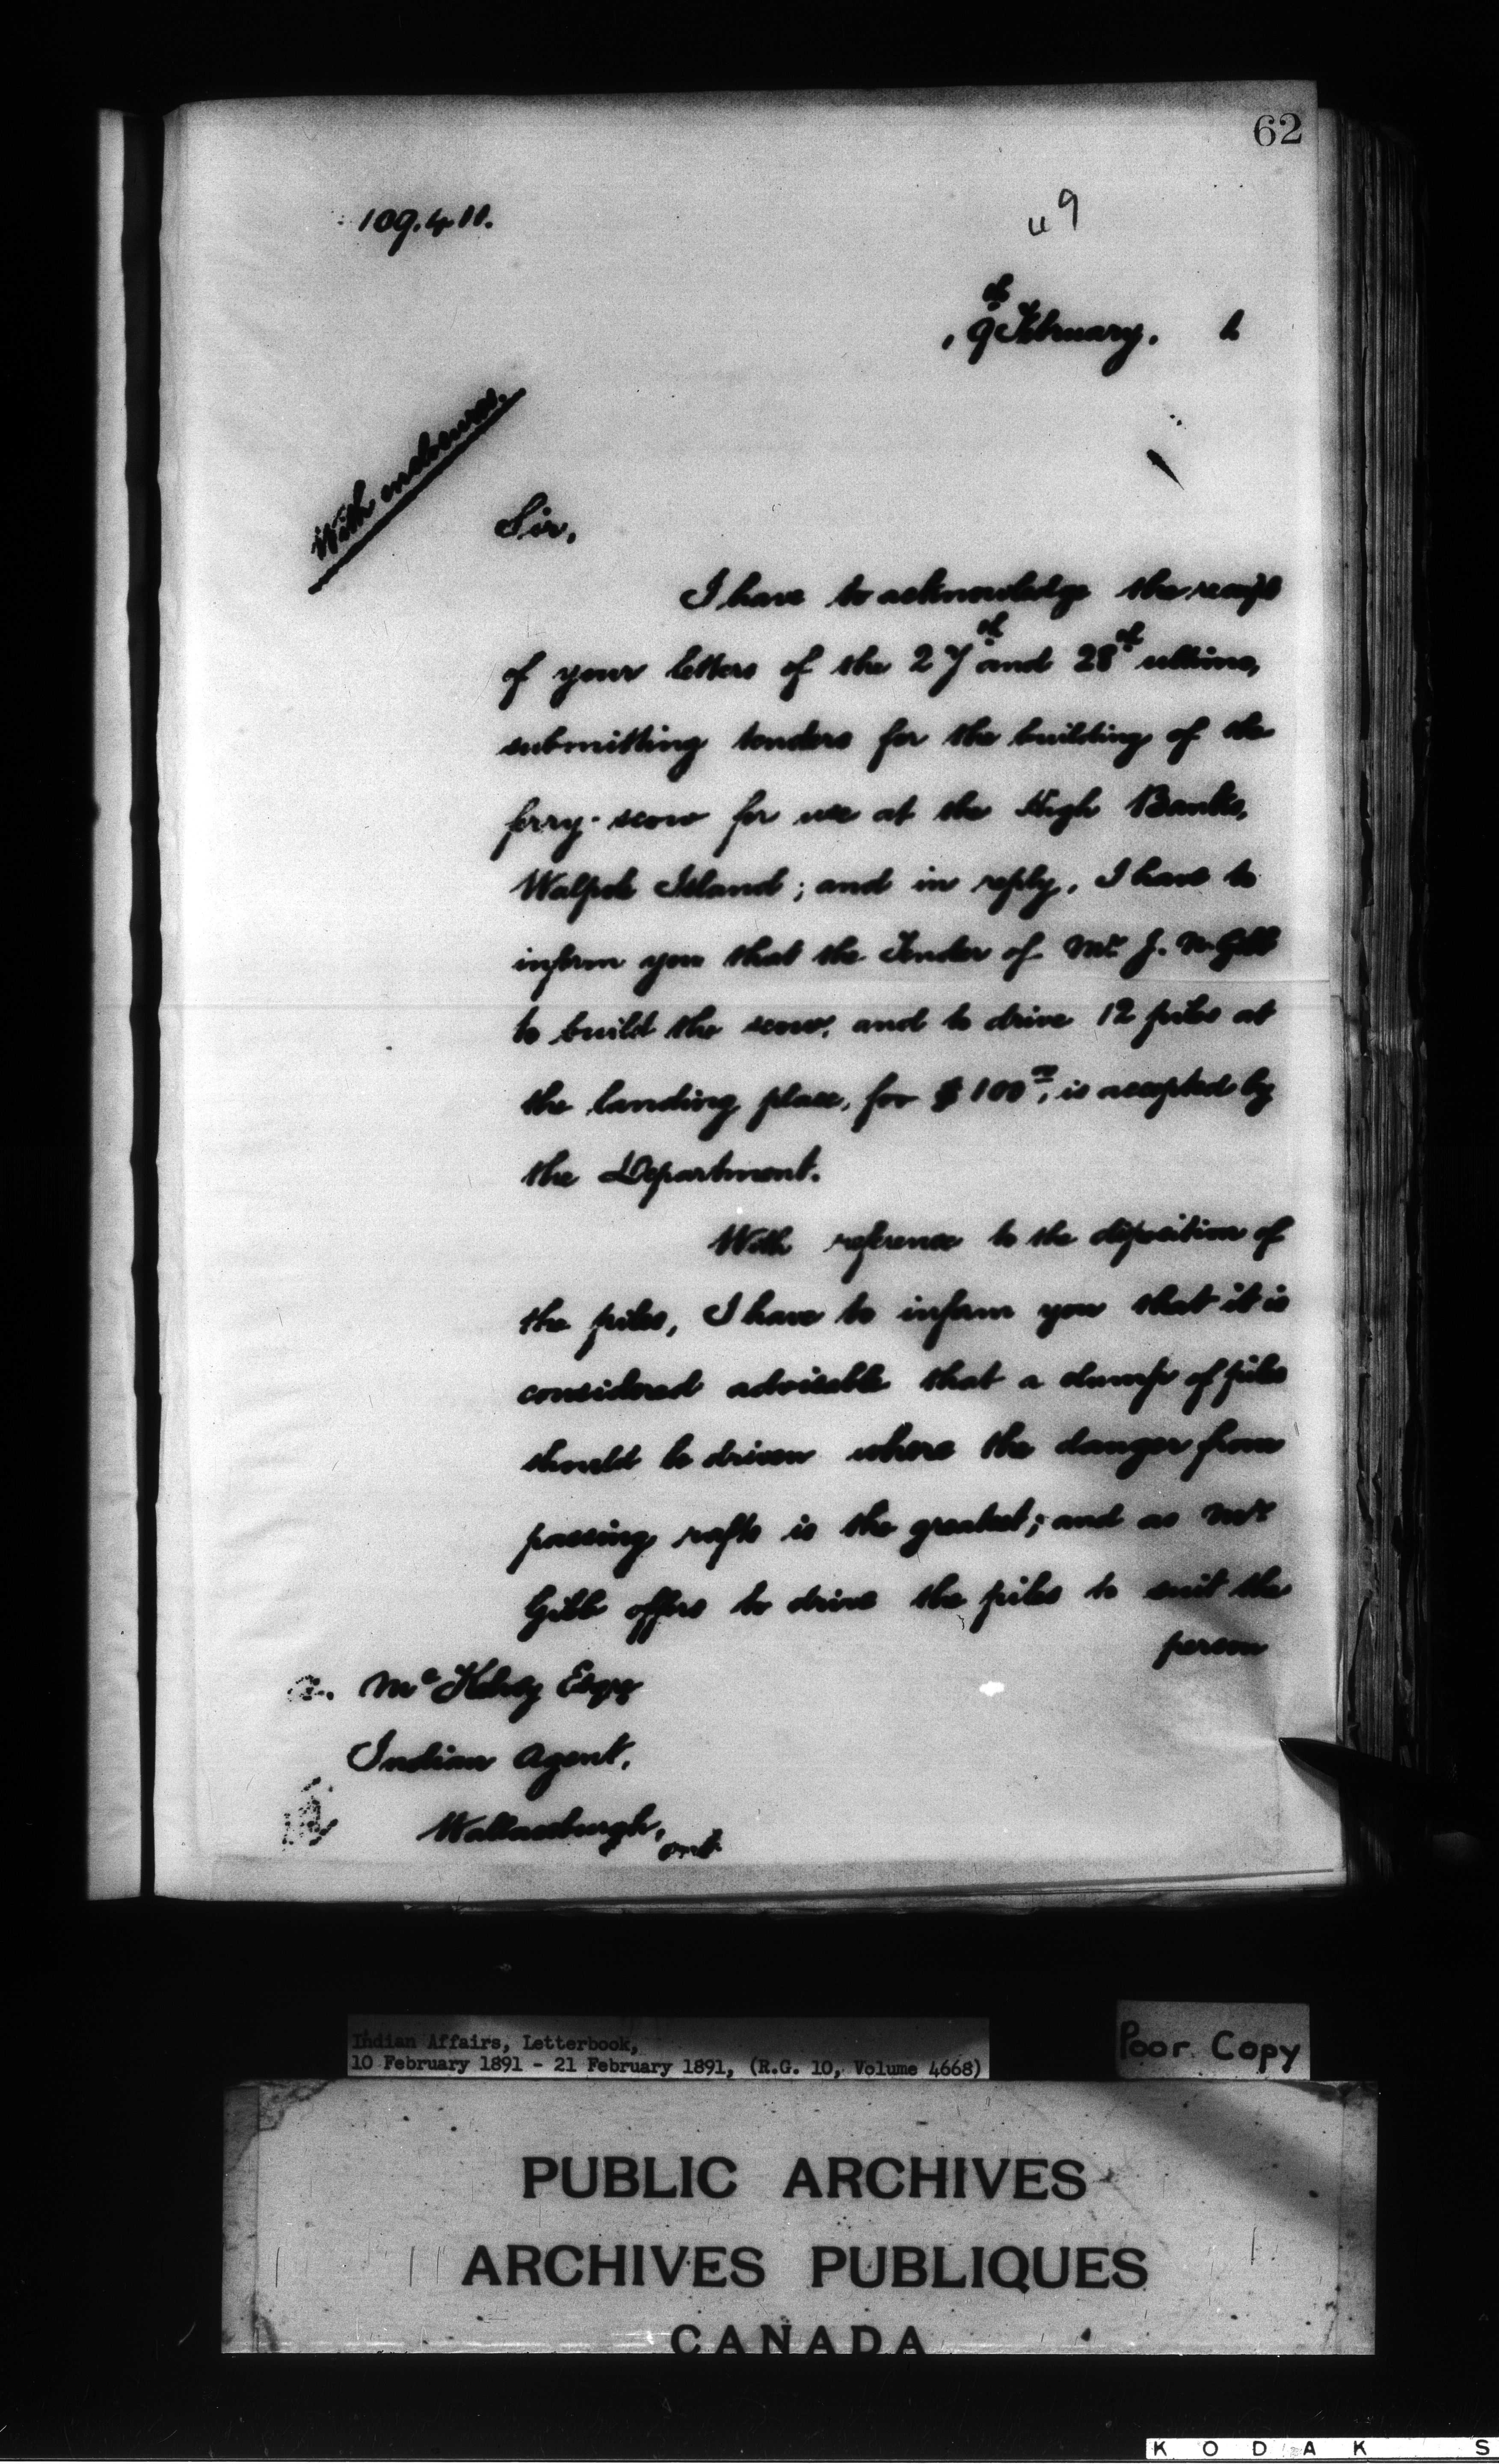 62
109.411.
49
9th February.
With enclosures.
Sir,
I have to acknowledge the receipt
of your letters of the 27th and 28th ultimo,
submitting tenders for the building of the
ferry-scow for use at the High Banks,
Walpole Island; and in reply, I have to
inform you that the Tender of Mr. J. W. Gibb
to build the scow, and to drive 12 piles at
the landing place, for $100.00, is accepted by
the Department.
With reference to the disposition of
the piles, I have to inform you that it is
considered advisable that a clump of piles
should be driven where the danger from
passing rafts is the greatest; and as Mr
Gibb offers to drive the piles to suit the
person
A. McKelvey Esqre
Indian Agent,
Wallaceburgh, Ont.
Indian Affairs, Letterbook,
10 February 1891 - 21 February 1891, (R.G. 10, Volume 4668)
Poor Copy
PUBLIC ARCHIVES
ARCHIVES PUBLIQUES
CANADA
KODAK S